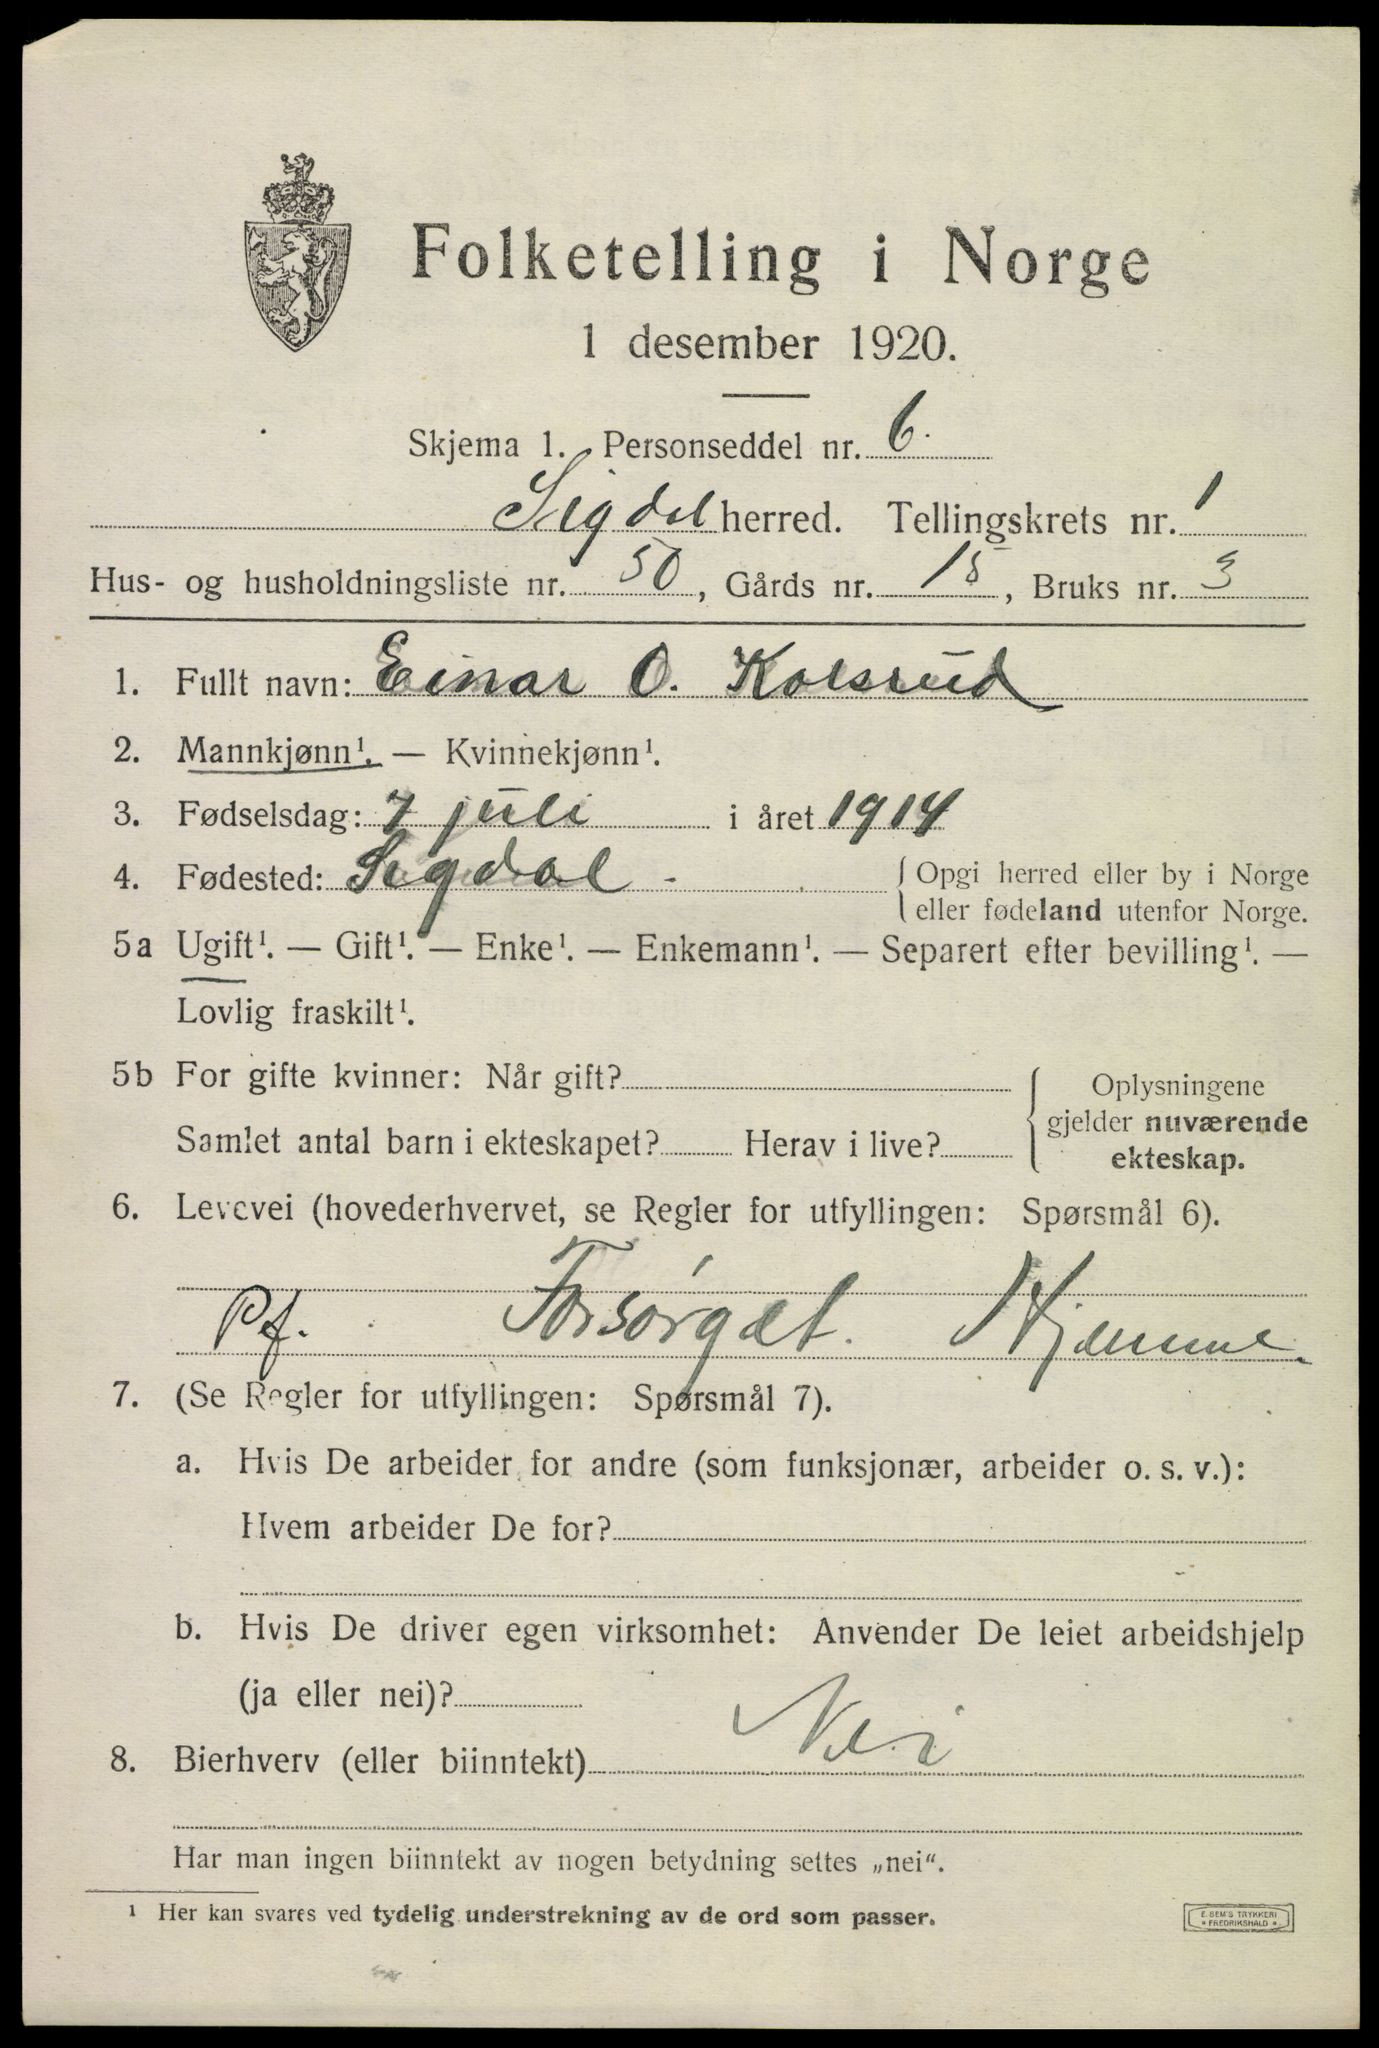 Folketelling i Norge
1 desember 1920.
Skjema 1. Personseddel nr. 6.
Sigdal herred. Tellingskrets nr. 1
Hus- og husholdningsliste nr. 50, Gårds nr. 15, Bruks nr. 3
1. Fullt navn: Einar O. Kolsrud
2. Mannkjønn¹. — Kvinnekjønn¹.
3. Fødselsdag: 7 juli i året 1914
4. Fødested: Sigdal - { Opgi herred eller by i Norge
eller fødeland utenfor Norge.
5a Ugift¹. — Gift¹. — Enke¹. — Enkemann¹. — Separert efter bevilling¹. —
Lovlig fraskilt¹.
5b For gifte kvinner: Når gift?
Samlet antal barn i ekteskapet? Herav i live?
Oplysningene
gjelder nuværende
ekteskap.
6. Levevei (hovederhvervet, se Regler for utfyllingen: Spørsmål 6).
Pf. Forsørget. Hjemme.
7. (Se Regler for utfyllingen: Spørsmål 7).
a. Hvis De arbeider for andre (som funksjonær, arbeider o. s. v.):
Hvem arbeider De for?
b. Hvis De driver egen virksomhet: Anvender De leiet arbeidshjelp
(ja eller nei)?
8. Bierhverv (eller biinntekt) Nei
Har man ingen biinntekt av nogen betydning settes „nei“.
¹ Her kan svares ved tydelig understrekning av de ord som passer.
E. SEM'S TRYKKERI
FREDRIKSHALD